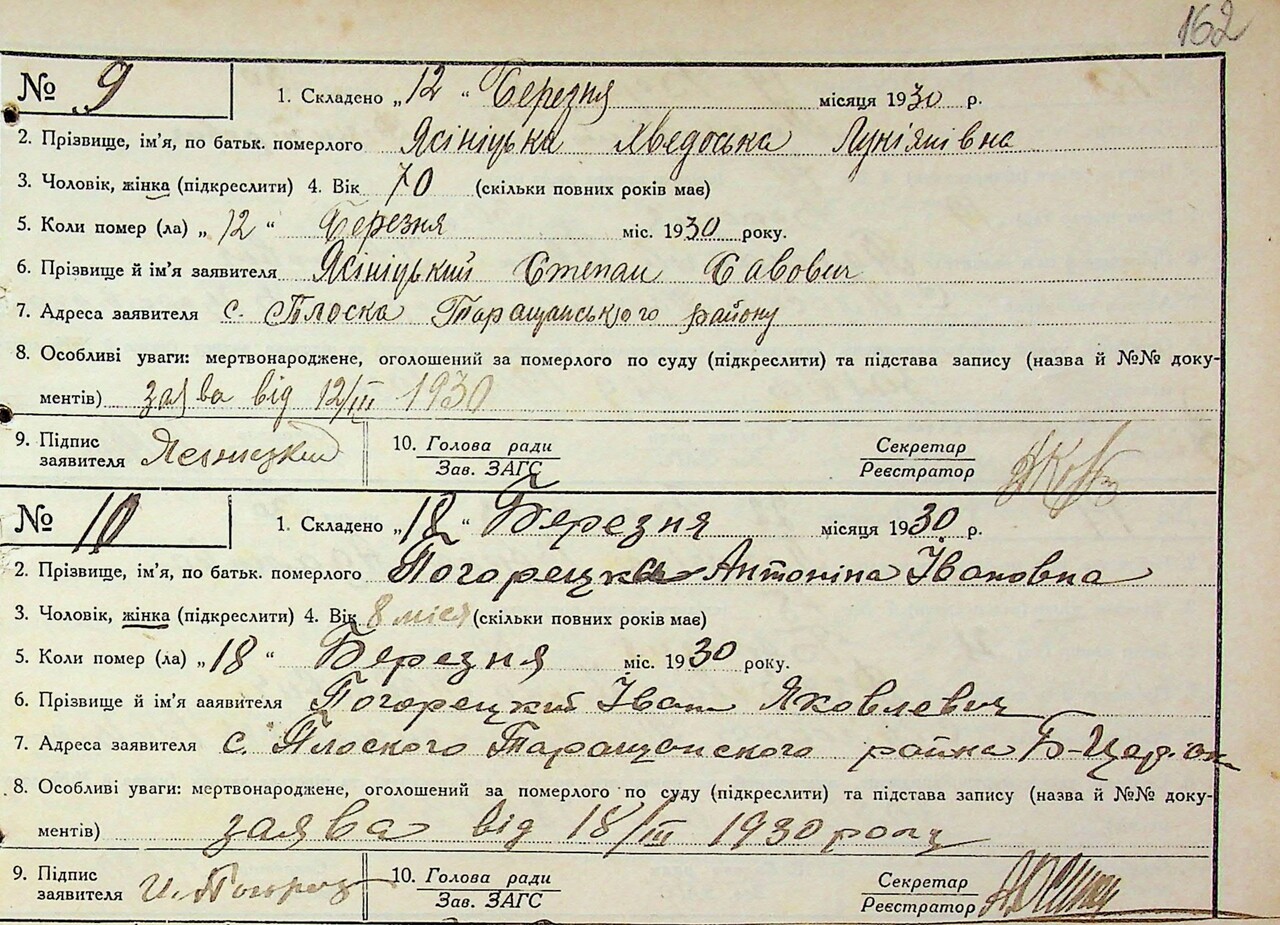 162
№ 9 1. Складено „12“ Березня місяця 1930 р.
2. Прізвище, ім'я, по батьк. померлого Ясініцька Хведоська Лукіянівна
3. Чоловік, жінка (підкреслити) 4. Вік 70 (скільки повних років має)
5. Коли помер (ла) „12“ Березня міс. 1930 року.
6. Прізвище й ім'я заявителя Ясініцький Степан Савович
7. Адреса заявителя с. Плоска Таращанського району
8. Особливі уваги: мертвонароджене, оголошений за померлого по суду (підкреслити) та підстава запису (назва й №№ доку-
ментів) заява від 12/III 1930
9. Підпис заявителя Ясницкий 10. Голова ради Секретар
Зав. ЗАГС Реєстратор
№ 10 1. Складено „18“ Березня місяця 1930 р.
2. Прізвище, ім'я, по батьк. померлого Погорецька Антоніна Івановна
3. Чоловік, жінка (підкреслити) 4. Вік 8 міся (скільки повних років має)
5. Коли помер (ла) „18“ Березня міс. 1930 року.
6. Прізвище й ім'я ааявителя Погорецкий Іван Яковлевич
7. Адреса заявителя с. Плоского Таращанского район Б-Церк
8. Особливі уваги: мертвонароджене, оголошений за померлого по суду (підкреслити) та підстава запису (назва й №№ доку-
ментів) заява від 18/III 1930 року
9. Підпис заявителя И. Погорец 10. Голова ради Секретар
Зав. ЗАГС Реєстратор